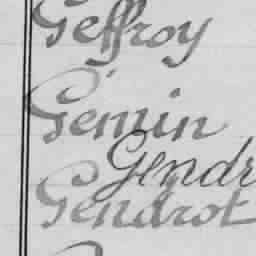 Geffroy
Gémin
Gendr
Gendrot